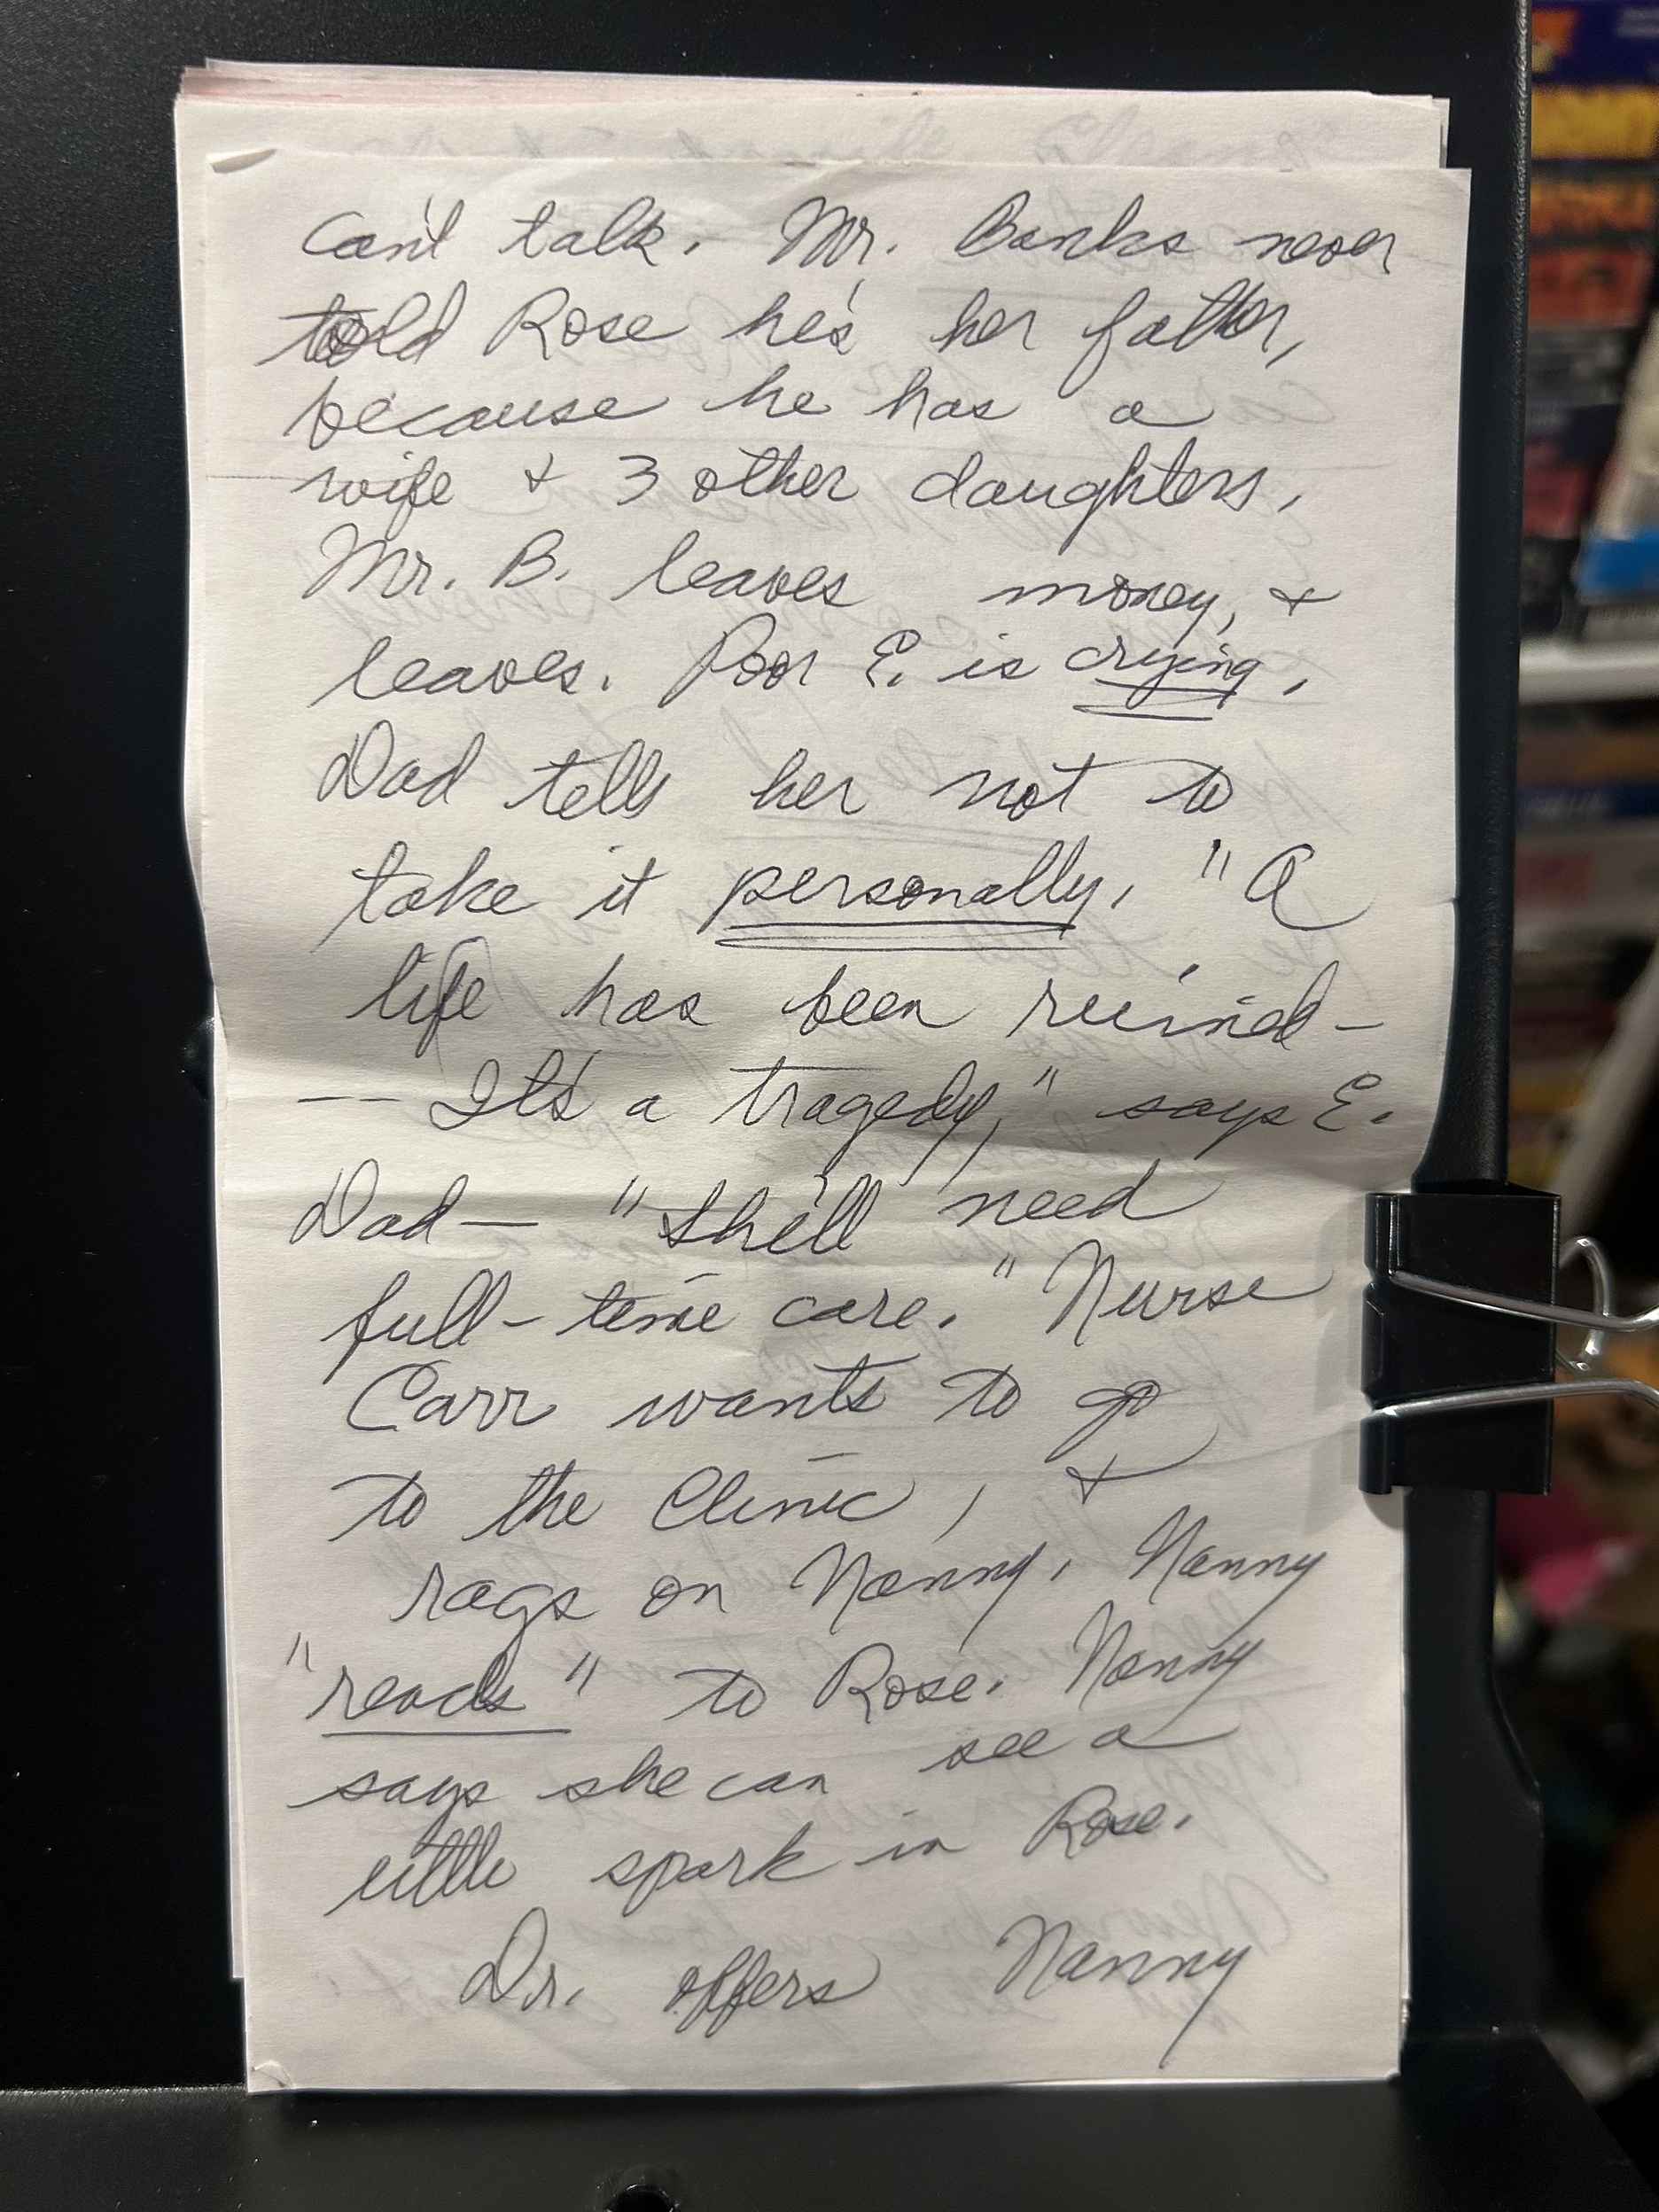 can't talk. Mr. Banks never
told Rose he's her father,
because he has a
wife & 3 other daughters.
Mr. B. leaves money, &
leaves. Poor E. is crying.
Dad tells her not to
take it personally. "A
life has been ruined-
-- It's a tragedy," says E.
Dad— "She'll need
full-time care." Nurse
Carr wants to go
to the Clinic, &
rags on Nanny. Nanny
"reads" to Rose. Nanny
says she can see a
little spark in Rose.
Dr. offers Nanny